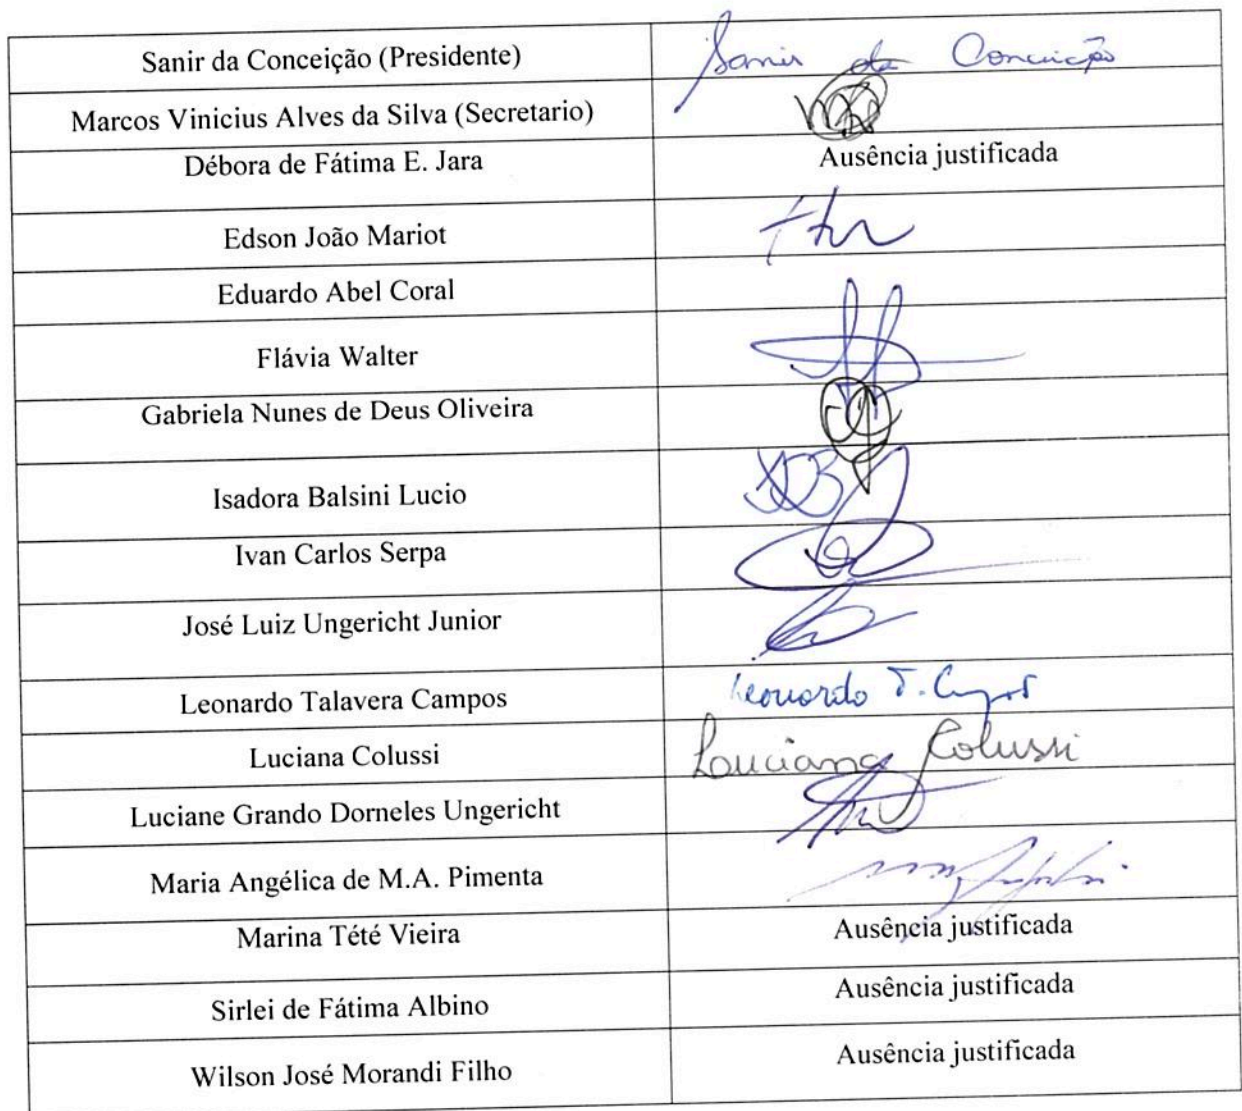 Sanir da Conceição (Presidente) Sanir da Conceição
Marcos Vinicius Alves da Silva (Secretario)
Débora de Fátima E. Jara Ausência justificada
Edson João Mariot
Eduardo Abel Coral
Flávia Walter
Gabriela Nunes de Deus Oliveira
Isadora Balsini Lucio
Ivan Carlos Serpa
José Luiz Ungericht Junior
Leonardo Talavera Campos Leonardo T. Campos
Luciana Colussi Luciana Colussi
Luciane Grando Dorneles Ungericht
Maria Angélica de M.A. Pimenta
Marina Tété Vieira Ausência justificada
Sirlei de Fátima Albino Ausência justificada
Wilson José Morandi Filho Ausência justificada